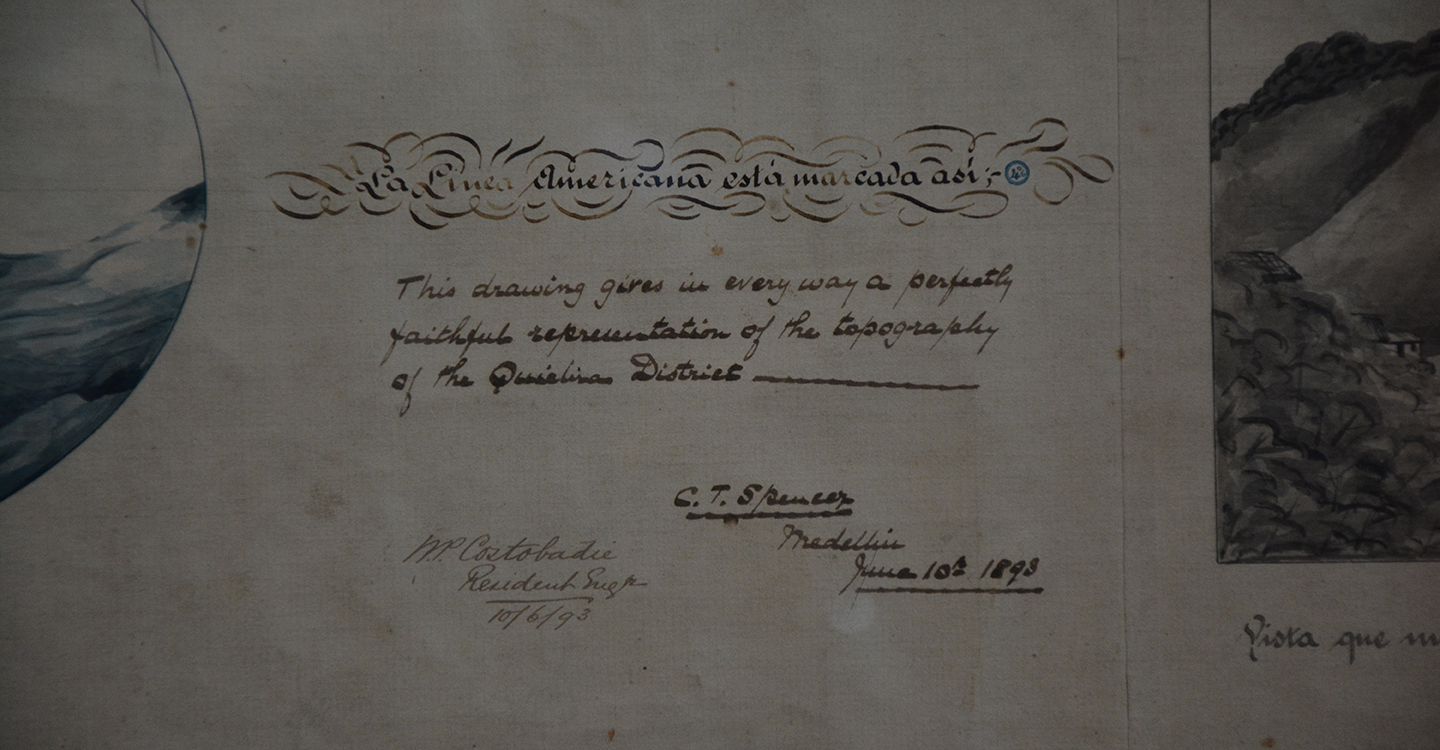 La Línea Americana está marcada así;-
This drawing gives in every way a perfectly
faithful representation of the topography
of the District
C. T. Spencer
Medellin
June 10th 1893
W.P. Costobadie
Resident Engr
10/6/93
Vista que